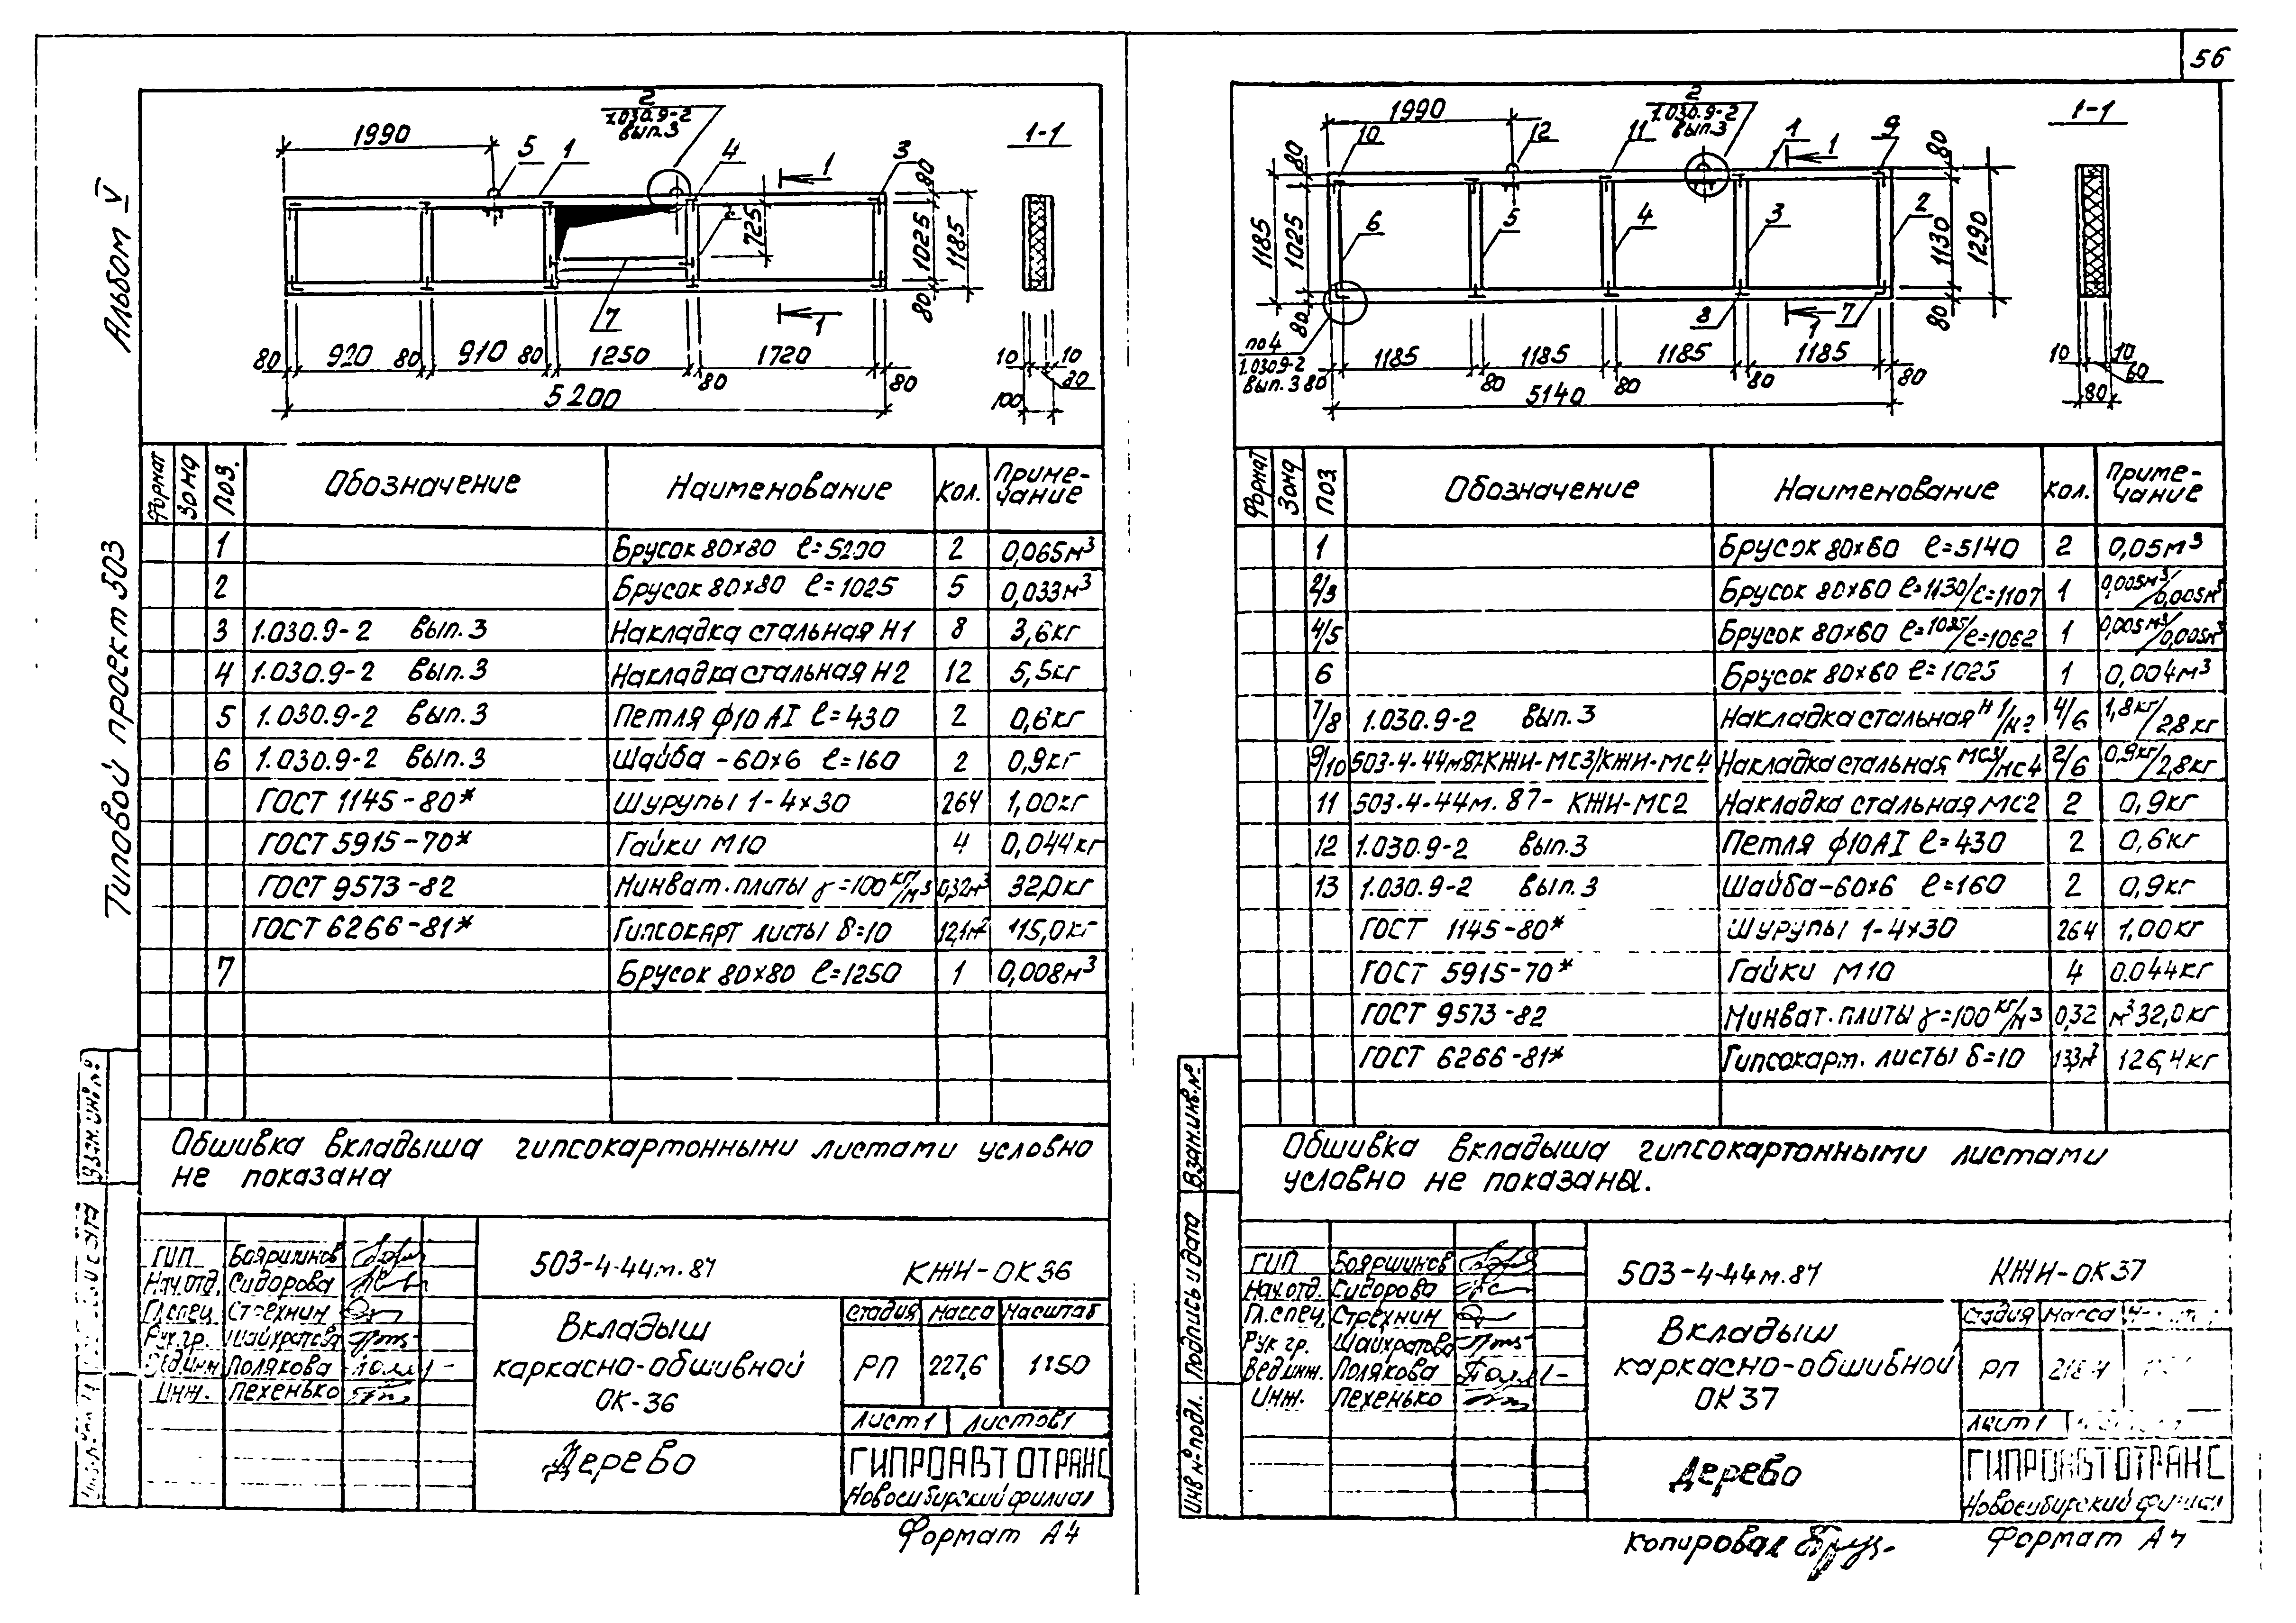 56
Альбом V
Типовой проект 503
2
1.030.9-2
вып.3
1-1
1990
5
1
4
1
3
80
2
725
1025
1185
80
7
1
80 920 80 910 80 1250 80 1720 80
5200
10 10
80
100
Формат Зона Поз. Обозначение Наименование Кол. Примечание
1 Брусок 80х80 ℓ=5200 2 0,065м³
2 Брусок 80х80 ℓ=1025 5 0,033м³
3 1.030.9-2 вып.3 Накладка стальная Н1 8 3,6кг
4 1.030.9-2 вып.3 Накладка стальная Н2 12 5,5кг
5 1.030.9-2 вып.3 Петля ф10АI ℓ=430 2 0,6кг
6 1.030.9-2 вып.3 Шайба -60х6 ℓ=160 2 0,9кг
ГОСТ 1145-80* Шурупы 1-4х30 264 1,00кг
ГОСТ 5915-70* Гайки М10 4 0,044кг
ГОСТ 9573-82 Минват.плиты γ=100 кг/м3 0,32м³ 32,0кг
ГОСТ 6266-81* Гипсокарт листы δ=10 12,1м² 115,0кг
7 Брусок 80х80 ℓ=1250 1 0,008м³
Обшивка вкладыша гипсокартонными листами условно
не показана
ГИП Бояршинов
Нач.отд. Сидорова
Гл.спец. Стрехнин
Рук.гр. Шайхратова
Вед.инж. Полякова
Инж. Пехенько
503-4-44м.87 КЖИ-ОК36
Вкладыш
каркасно-обшивной
ОК-36
Стадия Масса Масштаб
РП 227,6 1:50
Лист 1 Листов 1
Дерево
ГИПРОАВТОТРАНС
Новосибирский филиал
Формат А4
Взам.инв.№
2
1.030.9-2
вып.3
1-1
1990
10
12
11
1
1
9
80
80
1185
1025
80
6
5
4
3
2
1130
1290
80
8
7
1
по 4
1.030.9-2
вып.3
80 1185 80 1185 80 1185 80 1185 80
5140
10 10
60
80
Формат Зона Поз. Обозначение Наименование Кол. Примечание
1 Брусок 80х60 ℓ=5140 2 0,05м³
2/3 Брусок 80х60 ℓ=1130/ℓ=1107 1 0,005м³/0,005м³
4/5 Брусок 80х60 ℓ=1085/ℓ=1062 1 0,005м³/0,005м³
6 Брусок 80х60 ℓ=1025 1 0,004м³
7/8 1.030.9-2 вып.3 Накладка стальная Н1/Н2 4/6 1,8кг/2,8кг
9/10 503-4-44м87-КЖИ-МС3/КЖИ-МС4 Накладка стальная МС3/МС4 2/6 0,9кг/2,8кг
11 503-4-44м.87- КЖИ-МС2 Накладка стальная МС2 2 0,9кг
12 1.030.9-2 вып.3 Петля ф10АI ℓ=430 2 0,6кг
13 1.030.9-2 вып.3 Шайба-60х6 ℓ=160 2 0,9кг
ГОСТ 1145-80* Шурупы 1-4х30 264 1,00кг
ГОСТ 5915-70* Гайки М10 4 0.044кг
ГОСТ 9573-82 Минват.плиты γ=100 кг/м3 0,32 м³ 32,0кг
ГОСТ 6266-81* Гипсокарт. листы δ=10 13,3м² 126,4кг
Обшивка вкладыша гипсокартонными листами
условно не показаны.
ГИП Бояршинов
Нач.отд. Сидорова
Гл.спец. Стрехнин
Рук гр. Шайхратова
Вед.инж. Полякова
Инж. Пехенько
503-4-44м.87 КЖИ-ОК37
Вкладыш
каркасно-обшивной
ОК37
Стадия Масса
РП 218,4
Лист 1
Дерево
ГИПРОАВТОТРАНС
Новосибирский филиал
Инв № подл. Подпись и дата Взам.инв.№
Копировал
Формат А4